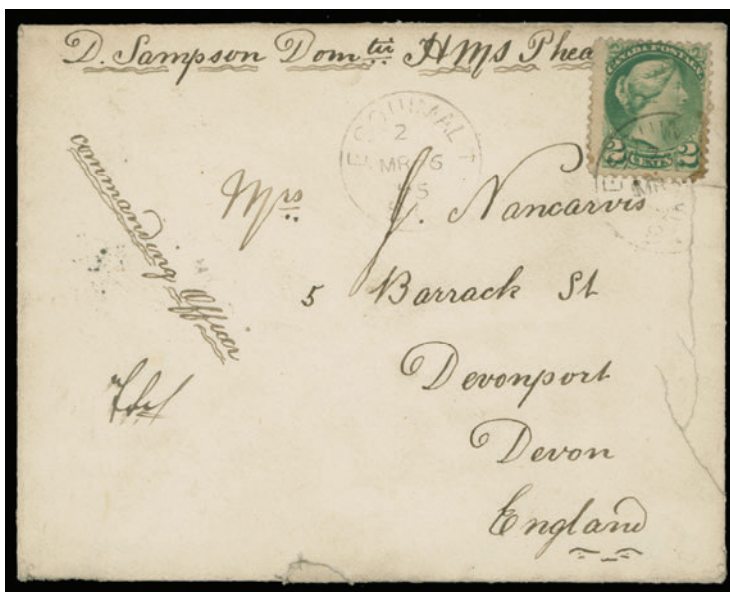 D. Sampson Domtic HMS Phea
CANADA POSTAGE
2 CENTS 2
ESQUIMALT
2
MR 6
95
Commanding Officer
Mrs J. Nancarvis
5 Barrack St
Devonport
Devon
England